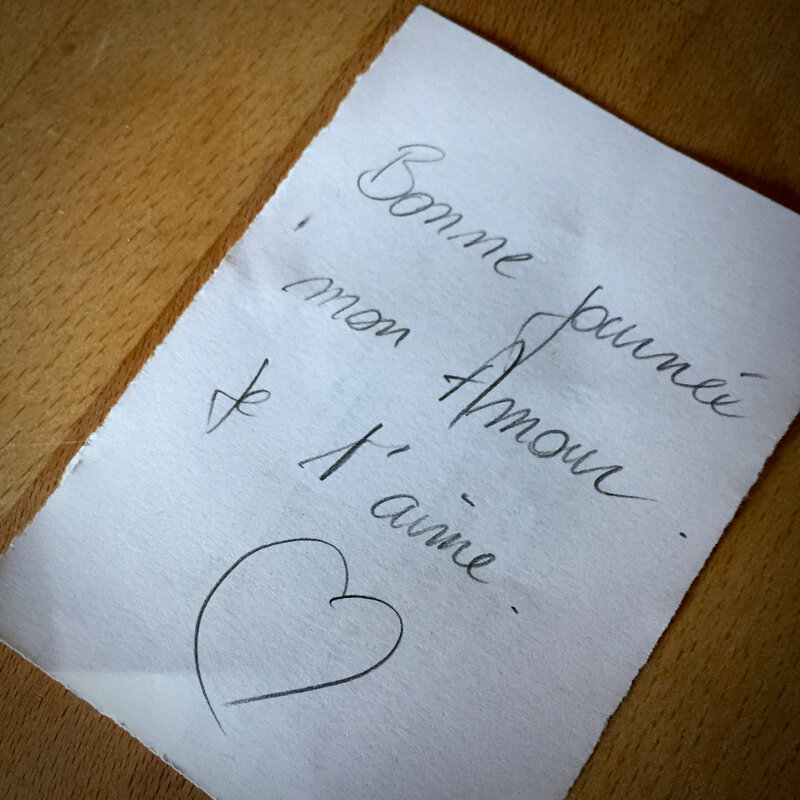 Bonne journée
mon Amour.
Je t'aime.